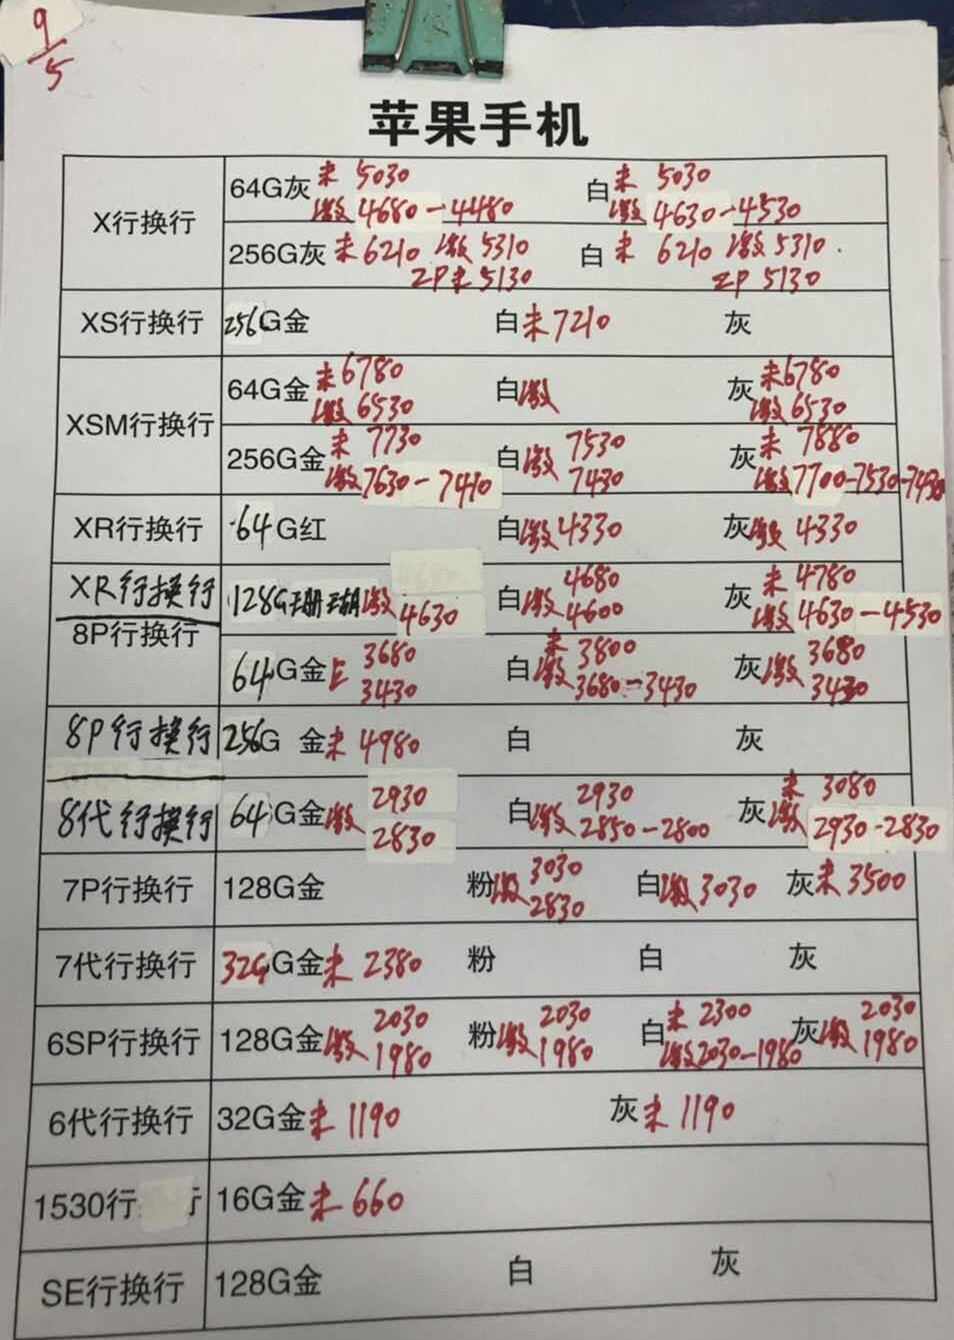 9/5
苹果手机
X行换行 64G灰 未 5030 白 未 5030
激 4680-4480 激 4630-4530
256G灰 未 6210 激 5310 白 未 6210 激 5310
ZP未 5130 ZP 5130
XS行换行 256G金 白 未 7210 灰
XSM行换行 64G金 未 6780 白 激 灰 未 6780
激 6530 激 6530
256G金 未 7730 白 激 7530 灰 未 7880
激 7630-7410 7430 激 7700-7530-7430
XR行换行 64G红 白 激 4330 灰 激 4330
XR行换行 128G珊瑚 激 4630 白 激 4680 灰 未 4780
4600 激 4630-4530
8P行换行 64G金 E 3680 白 未 3800 灰 激 3680
3430 激 3680-3430 3430
8P行换行 256G 金 未 4980 白 灰
8代行换行 64G金 激 2930 白 激 2930 灰 未 3080
2830 2850-2800 激 2930-2830
7P行换行 128G金 粉 激 3030 白 激 3030 灰 未 3500
2830
7代行换行 32G G金 未 2380 粉 白 灰
6SP行换行 128G金 激 2030 粉 激 2030 白 未 2300 灰 激 2030
1980 1980 激 2030-1980 1980
6代行换行 32G金 未 1190 灰 未 1190
1530行 行 16G金 未 660
SE行换行 128G金 白 灰